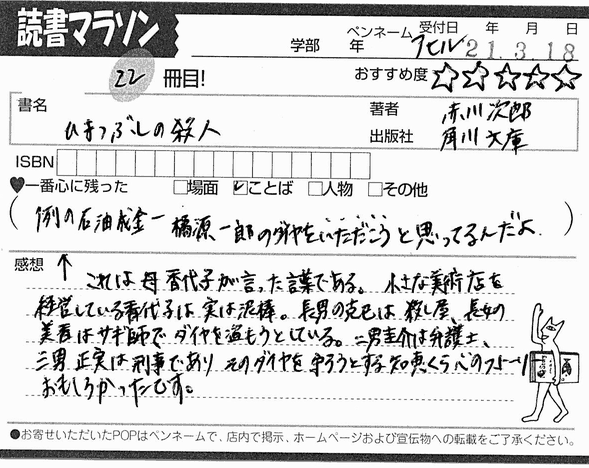 読書マラソン
学部 年 ペンネーム アヒル 受付日 年 月 日
21.3.18
22 冊目!
おすすめ度 ☆☆☆☆☆
書名
ひまつぶしの殺人
著者 赤川次郎
出版社 角川文庫
ISBN
♥一番心に残った □場面 ☑ことば □人物 □その他
(例の石油成金ー橘源一郎のダイヤをいただこうと思ってるんだよ.)
感想 ↑
これは母香代子が言った言葉である。小さな美術店を
経営している香代子は実は泥棒。長男の克巳は殺し屋、長女の
美香はサギ師でダイヤを盗もうとしている。二男圭介は弁護士、
三男正実は刑事であり そのダイヤを守ろうとする知恵くらべのストーリー
おもしろかったです。
●お寄せいただいたPOPはペンネームで、店内で掲示、ホームページおよび宣伝物への転載をご了承ください。